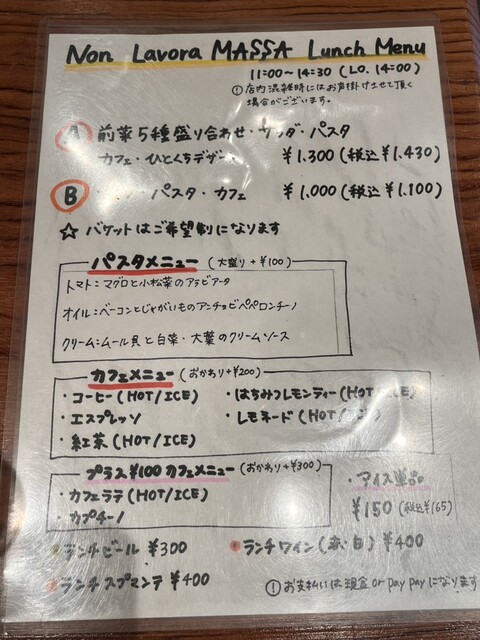 Non Lavora MASSA Lunch Menu
11:00〜14:30 (LO. 14:00)
! 店内混雑時にはお声掛けさせて頂く
場合がございます。
A 前菜5種盛り合わせ・サラダ・パスタ
カフェ・ひとくちデザート ¥1.300(税込¥1.430)
B パスタ・カフェ ¥1.000(税込¥1.100)
☆ バケットはご希望制になります
パスタメニュー (大盛り+¥100)
トマト:マグロと小松菜のアラビアータ
オイル:ベーコンとじゃがいものアンチョビペペロンチーノ
クリーム:ムール貝と白菜・大葉のクリームソース
カフェメニュー (おかわり+¥200)
・コーヒー(HOT/ICE) ・はちみつレモンティー(HOT/ICE)
・エスプレッソ ・レモネード(HOT/
・紅茶(HOT/ICE)
プラス¥100カフェメニュー (おかわり+¥300)
・カフェラテ(HOT/ICE)
・カプチーノ
・アイス単品
¥150(税込¥165)
・ランチビール ¥300 ・ランチワイン(赤・白)¥400
・ランチスプマンテ ¥400
! お支払いは現金 or pay payになります